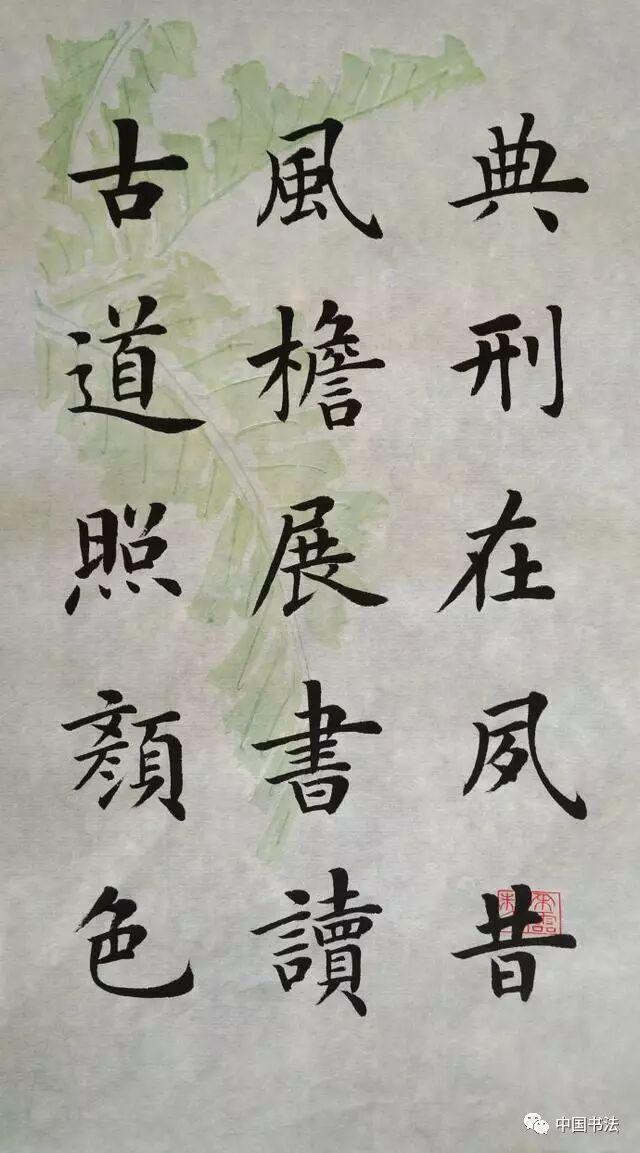 典刑在夙昔
風檐展書讀
古道照顏色
中国书法